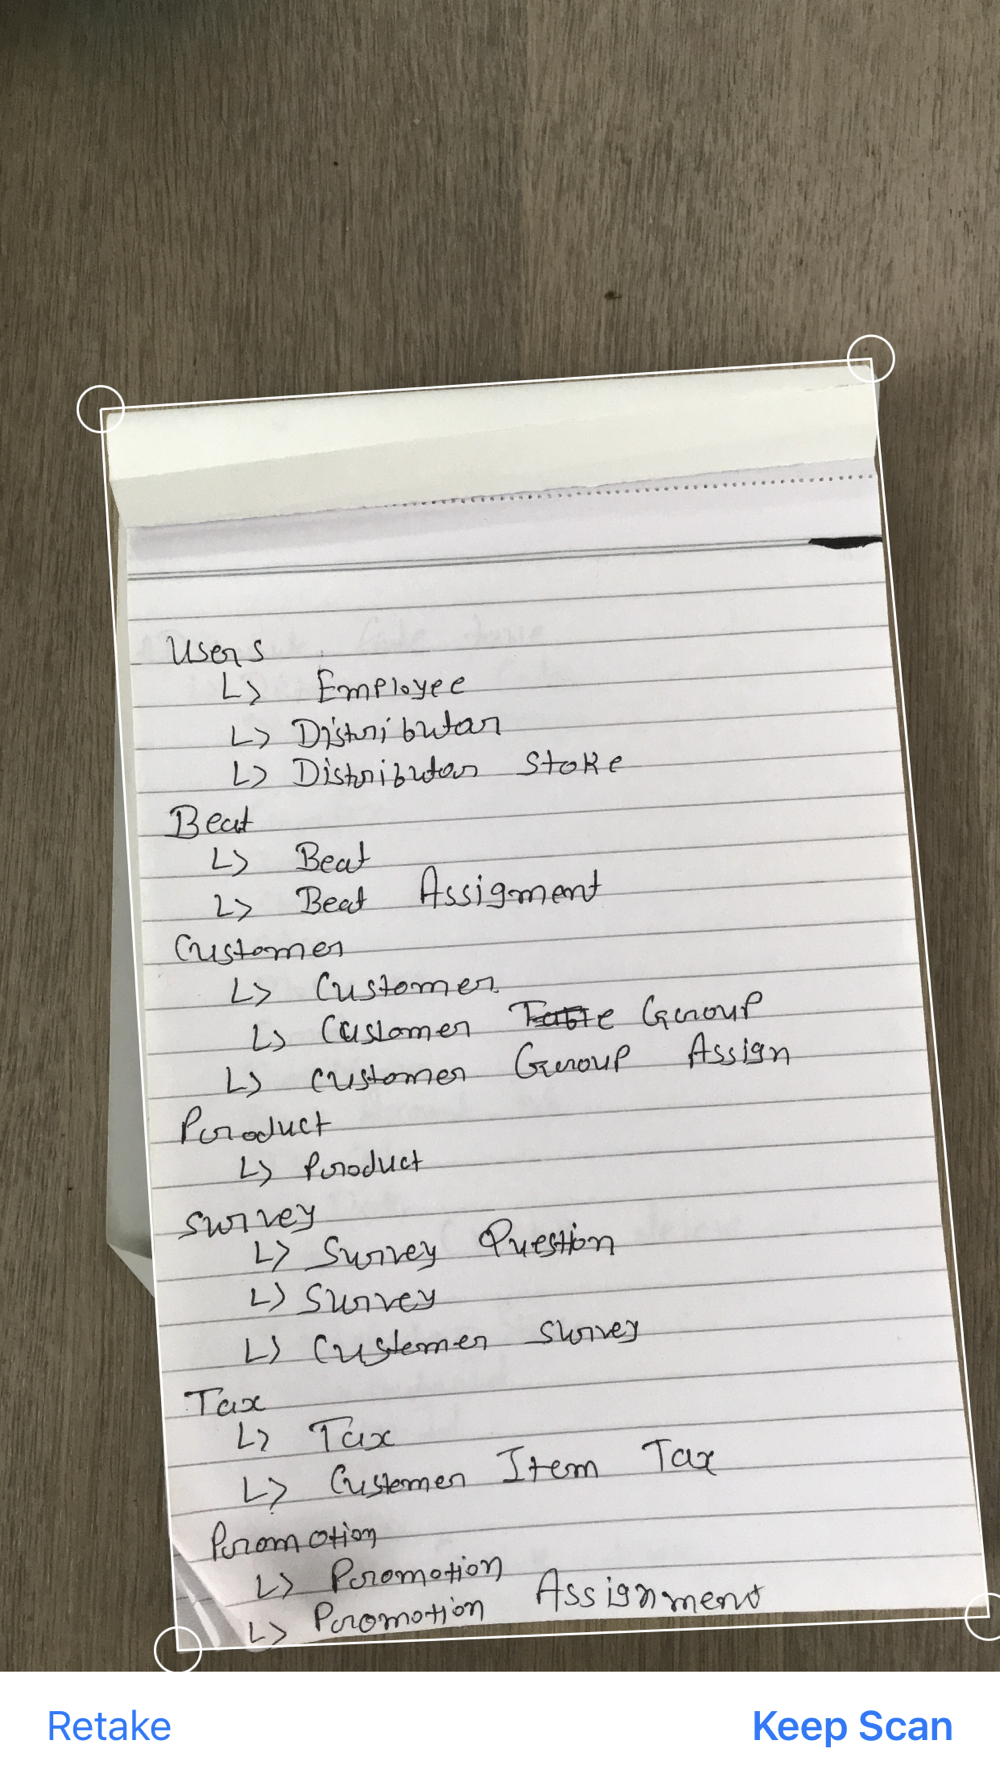 Users
↳ Employee
↳ Distributor
↳ Distributor Stoke
Beat
↳ Beat
↳ Beat Assigment
Customer
↳ Customer
↳ Customer Group
↳ Customer Group Assign
Product
↳ Product
Survey
↳ Survey Question
↳ Survey
↳ Customer Survey
Tax
↳ Tax
↳ Customer Item Tax
Promotion
↳ Promotion
↳ Promotion Assignment
Retake
Keep Scan